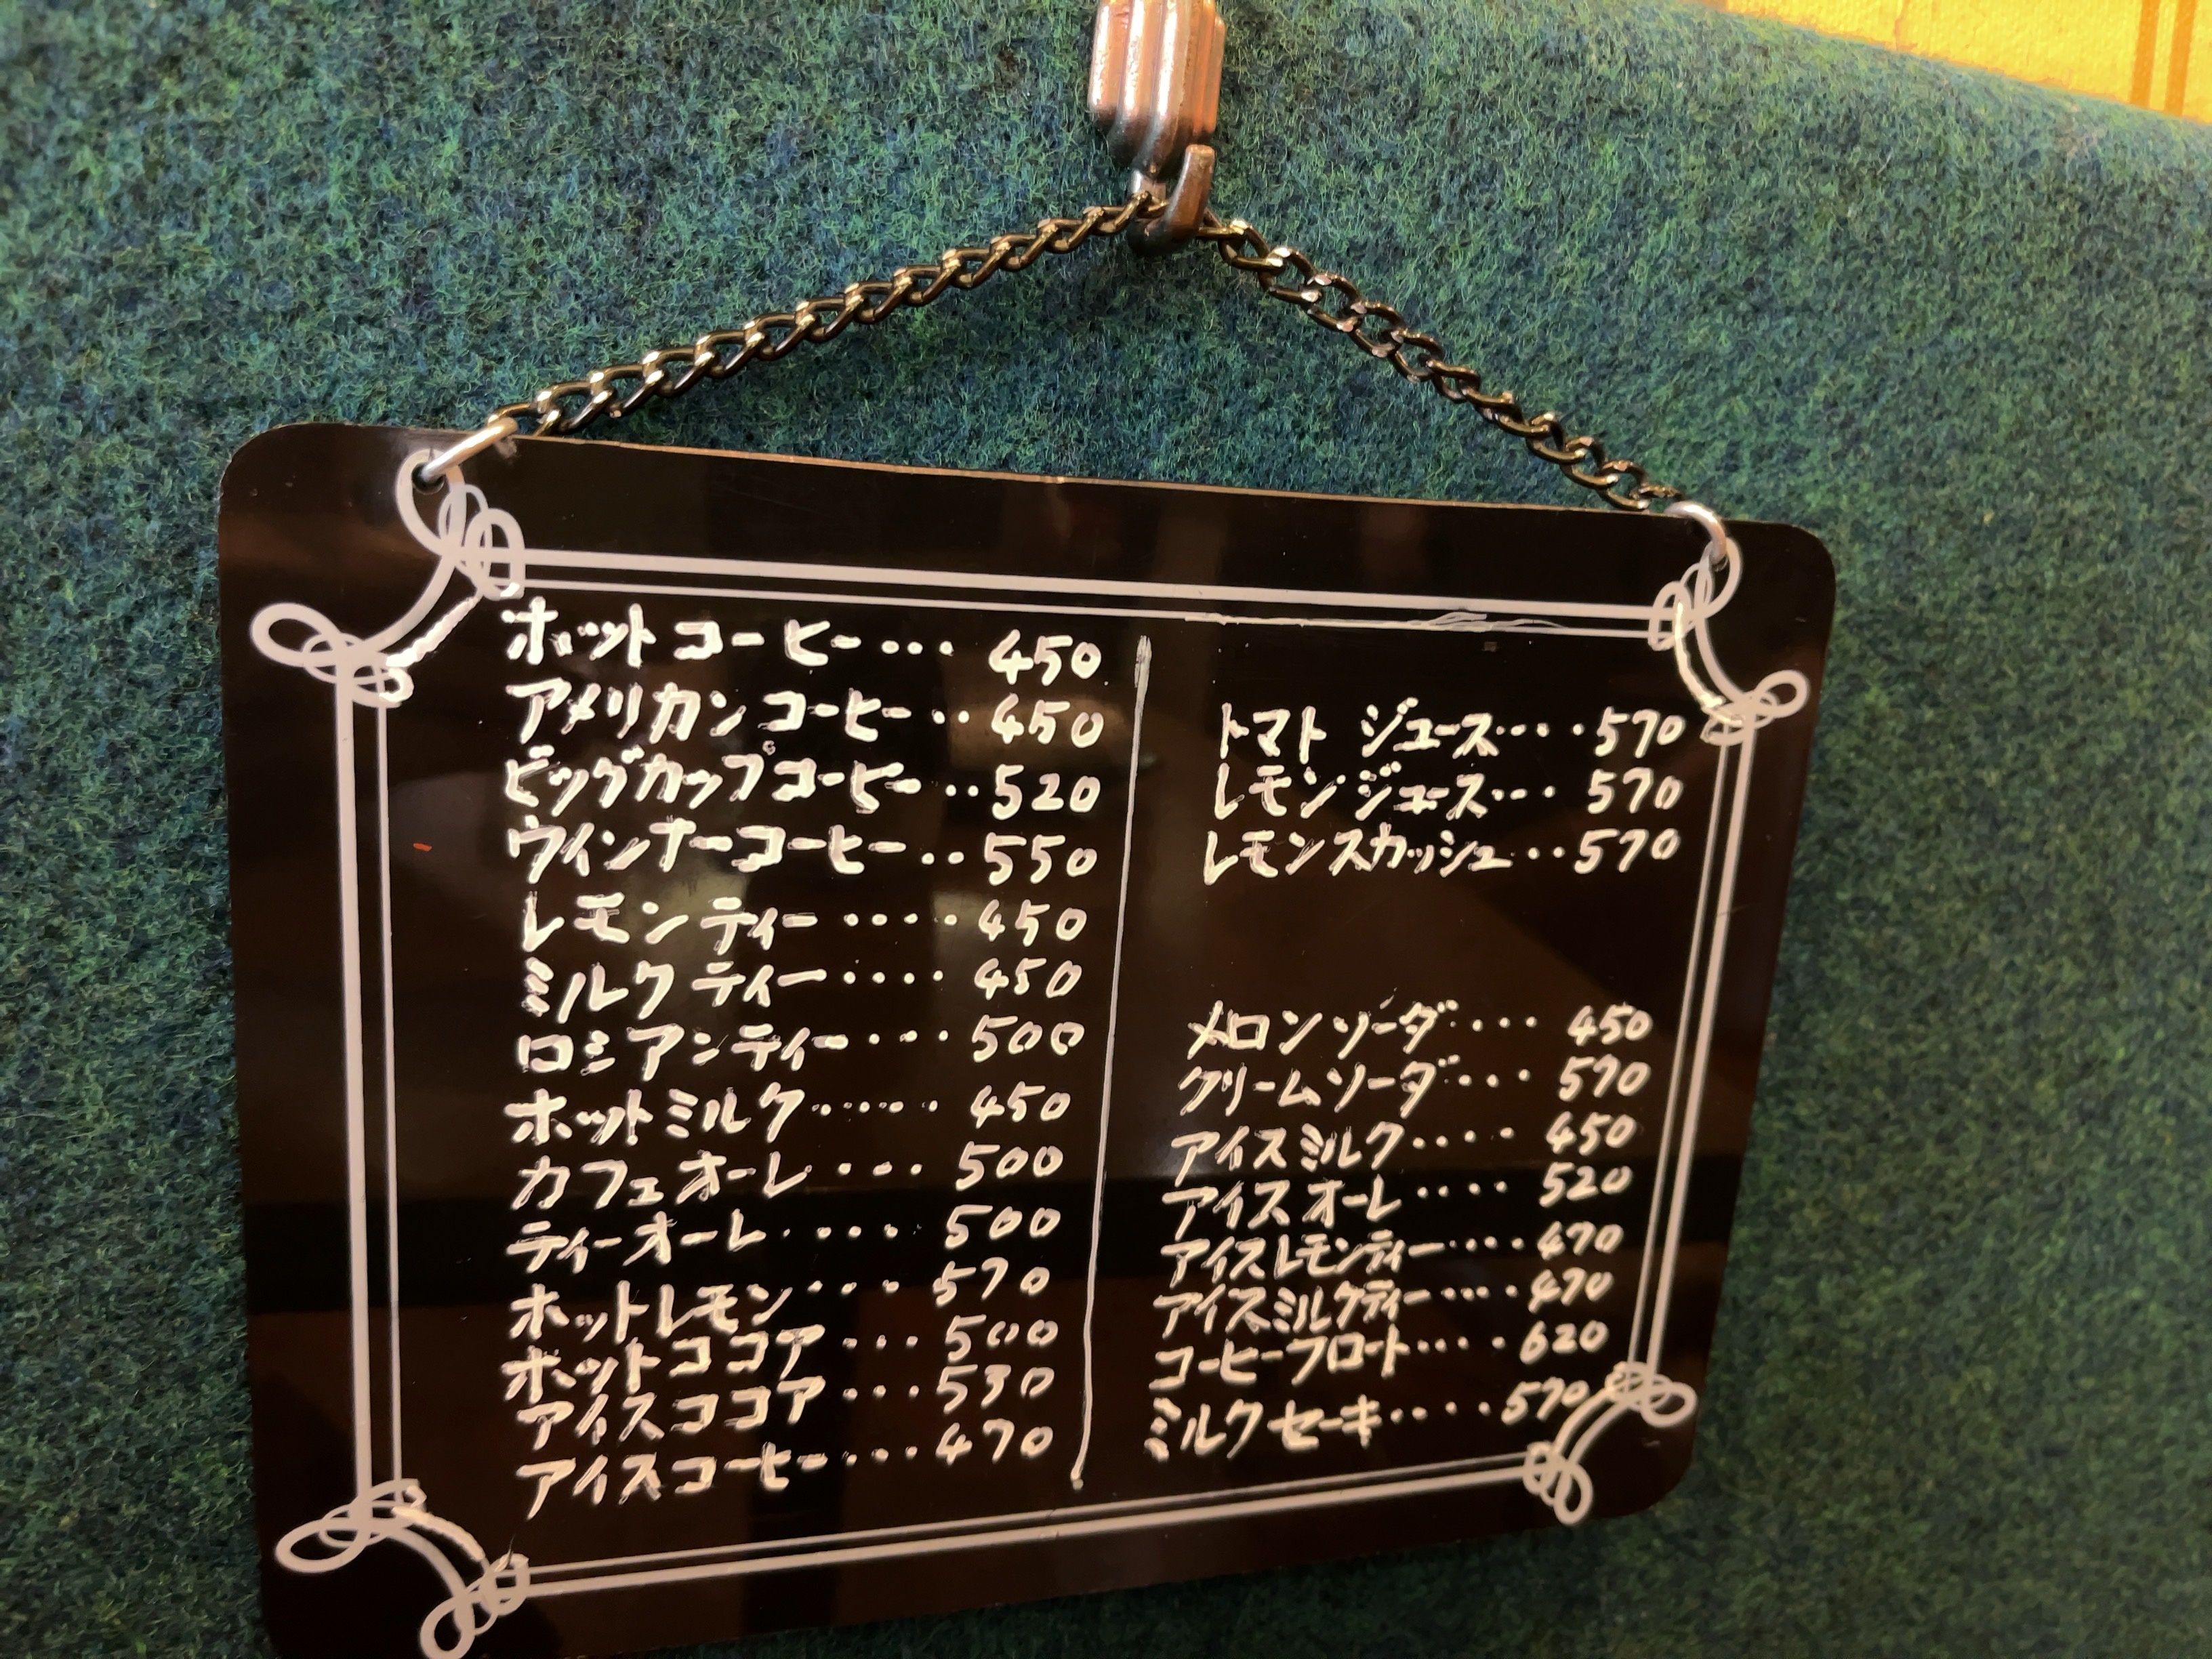 ホットコーヒー・・・450
アメリカンコーヒー・・450
ビッグカップコーヒー・・520
ウインナーコーヒー・・550
レモンティー・・・・450
ミルクティー・・・・450
ロシアンティー・・・500
ホットミルク・・・・・450
カフェオーレ・・・500
ティーオーレ・・・・500
ホットレモン・・・570
ホットココア・・・500
アイスココア・・・530
アイスコーヒー・・・470
トマトジュース・・・・570
レモンジュース・・・570
レモンスカッシュ・・・570
メロンソーダ・・・・450
クリームソーダ・・・570
アイスミルク・・・・450
アイスオーレ・・・・520
アイスレモンティー・・・・470
アイスミルクティー・・・・470
コーヒーフロート・・・・620
ミルクセーキ・・・・570